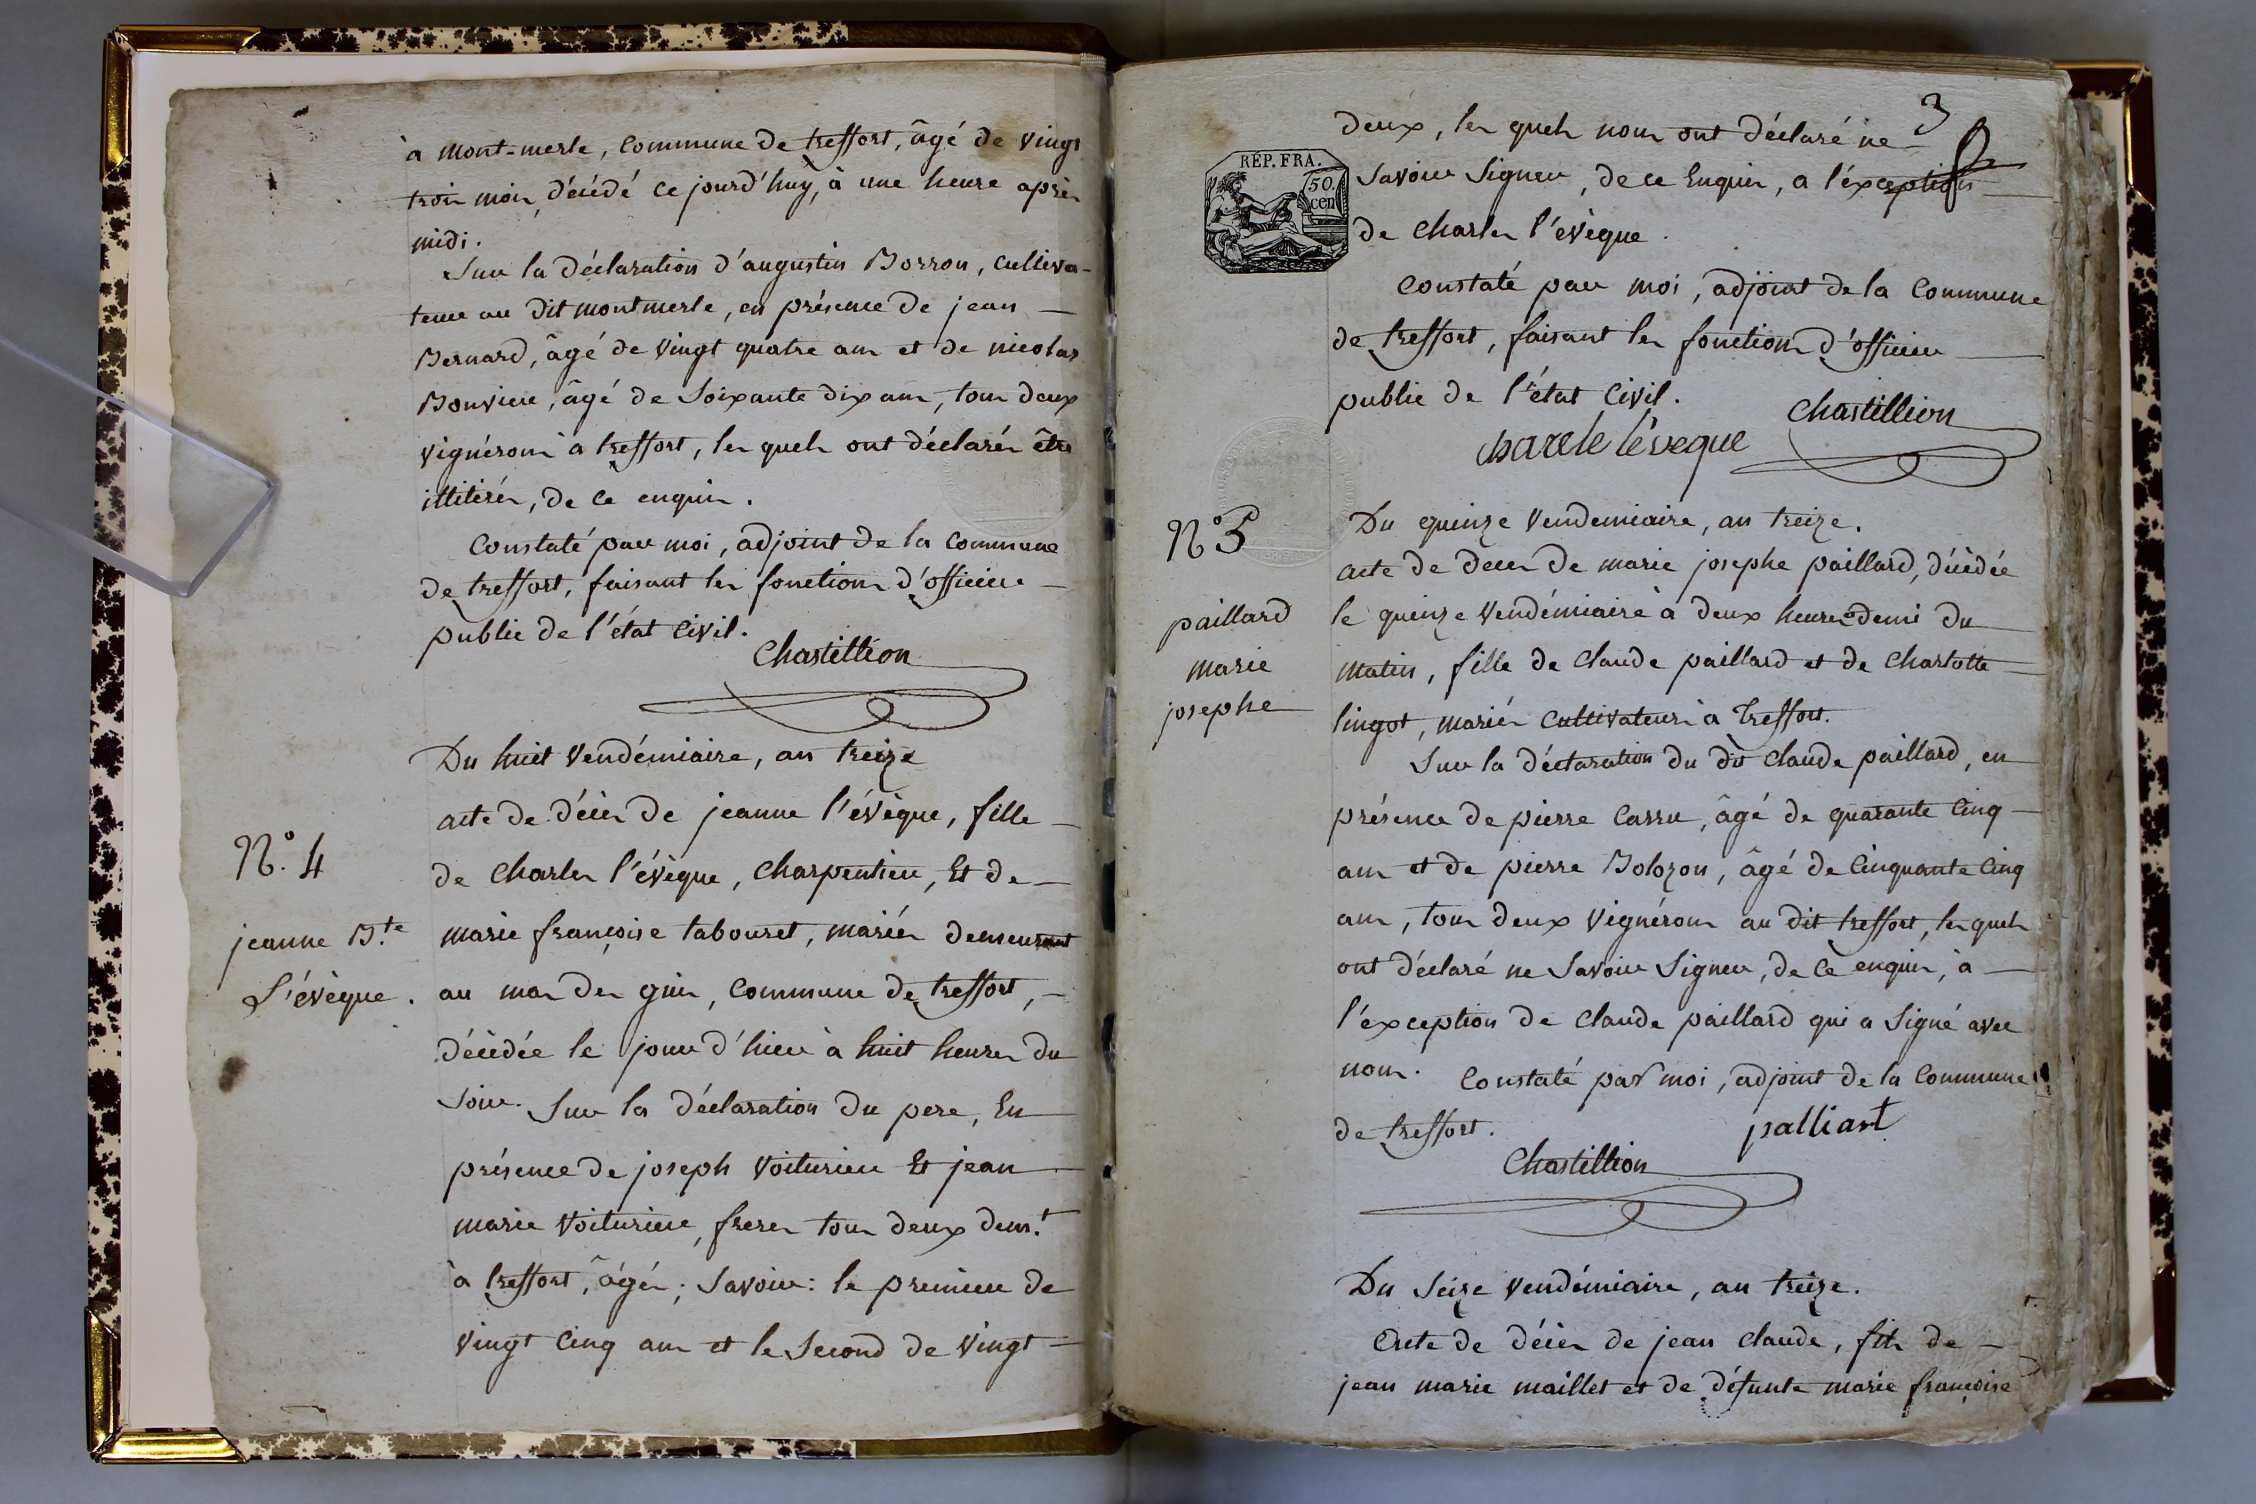 à mont-merle, commune de treffort, âgé de vingt
trois mois, décédé ce jourd'huy, à une heure après
midi.
Sur la déclaration d'augustin Borron, cultiva-
teur au dit montmerle, en présence de jean
Bernard, âgé de vingt quatre ans et de nicolas
Bouvier, âgé de soixante dix ans, tous deux
vignérons à treffort, les quels ont déclarés être
illitérés, de ce enquis.
Constaté par moi, adjoint de la commune
de treffort, faisant les fonctions d'officier
public de l'état civil.
Chastillion
Du huit vendémiaire, an treize
N.º 4
acte de décès de jeanne l'évèque, fille
de charles l'évèque, charpentier, Et de
jeanne B.te
L'évèque.
marie françoise tabouret, mariés demeurant
au mas des guis, commune de treffort,
décèdée le jour d'hier à huit heures du
soir. Sur la déclaration du pere, En
présence de joseph voiturier Et jean
marie voiturier, freres tous deux dem.t
à treffort, âgés; savoir: le premier de
vingt cinq ans et le second de vingt
3
deux, les quels nous ont déclaré ne
RÉP. FRA.
50.
cen
savoir signer, de ce Enquis, a l'éxception
de charles l'evèque.
Constaté par moi, adjoint de la commune
de treffort, faisant les fonctions d'officier
public de l'état civil.
Chastillion
charele lèveque
N.º 5
Du quinze vendemiaire, an treize.
acte de deces de marie josephe paillard, décèdée
paillard
marie
josephe
le quinze vendémiaire à deux heures demi du
matin, fille de claude paillard et de charlotte
lingot, mariés cultivateurs à treffort.
Sur la déclaration du dit claude paillard, en
présence de pierre carru, âgé de quarante cinq
ans et de pierre Bolozon, âgé de cinquante cinq
ans, tous deux vignérons au dit treffort, les quels
ont déclaré ne savoir signer, de ce enquis, à
l'éxception de claude paillard qui a signé avec
nous. Constaté par moi, adjoint de la commune
de treffort.
palliart
Chastillion
Du seize vendémiaire, an treize.
acte de décès de jean claude, fils de
jean marie maillet et de défunte marie françoise